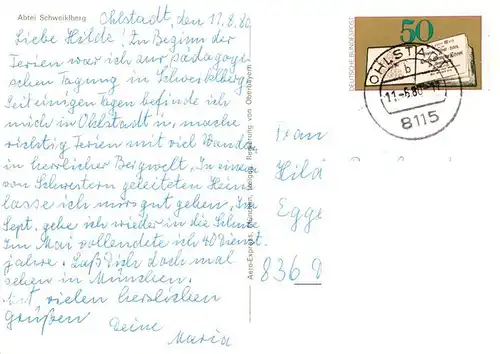 Abtei Schweiklberg
Ohlstadt, den 11.8.80
Liebe Hilde! Zu Beginn der
Ferien war ich zur pädagogi-
schen Tagung in Schweiklberg.
Seit einigen Tagen befinde ich
mich in Ohlstadt u. mache
richtig Ferien mit viel Wandern
in herrlicher Bergwelt. In einem
von Schwestern geleiteten Heim
lasse ich mirs gut gehen. Im
Sept. gehe ich wieder in die Schule
Im Mai vollendete ich 40 Dienst-
jahre. Laß Dich doch mal
sehen in München.
Mit vielen herzlichen
Grüßen
Deine
Maria
Aero-Express, München, Freigeg. Regierung von Oberbayern
DEUTSCHE BUNDESPOST
50
OHLSTA
b
8115
Frau
Hild
Egge
836 D